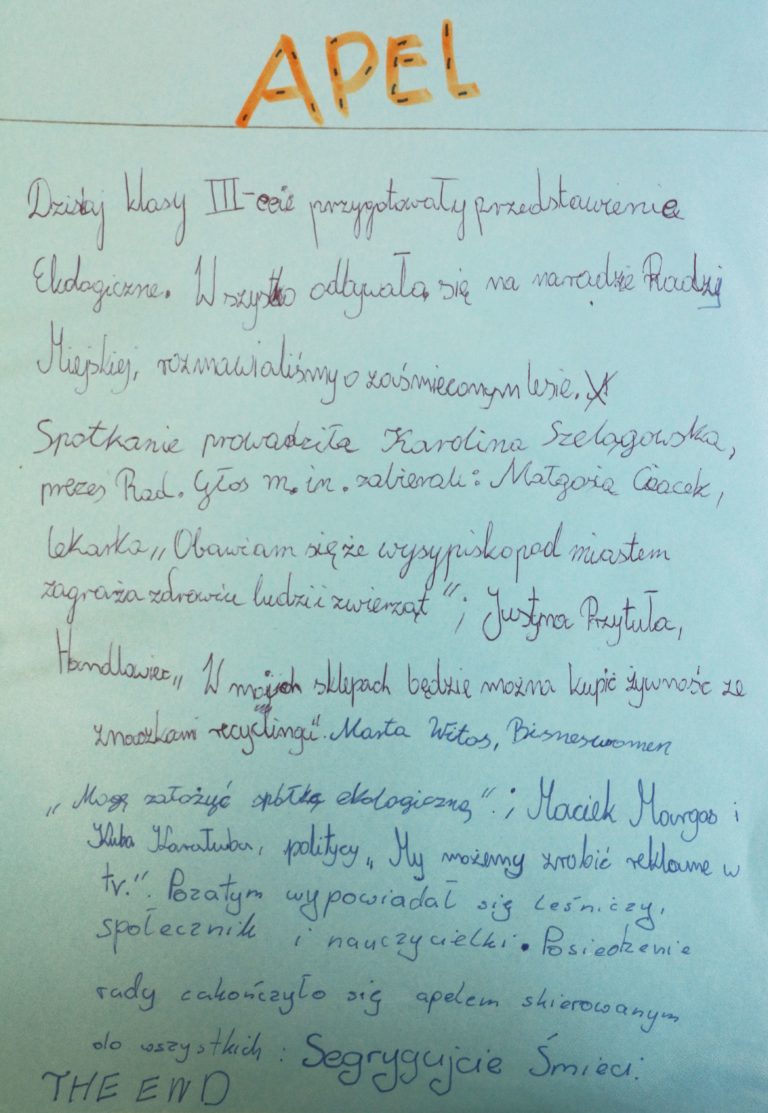 APEL
Dzisiaj klasy III-ecie przygotowały przedstawienie
Ekologiczne. Wszystko odbywało się na naradzie Radzij
Miejskiej, rozmawialiśmy o zaśmieconym lesie.
Spotkanie prowadziła Karolina Szelągowska,
prezes Rad. Głos m. in. zabierali: Małgosia
lekarka „Obawiam się że wysypisko pod miastem
zagraża zdrowiu ludzi i zwierząt"; Justyna Przytuła,
Handlawiec „W mojich sklepach będzie można kupić żywność ze
znaczkami recyclingu". Marta Witos, Bisneswomen
„Mogę założyć spółkę ekologiczną".; Maciek i
Kuba, politycy „My możemy zrobić reklame w
tv.". Pozatym wypowiadał się leśniczy,
społecznik i nauczycielki. Posiedzenie
rady zakończyło się apelem skierowanym
do wszystkich: Segrygujcie Śmieci.
THE END